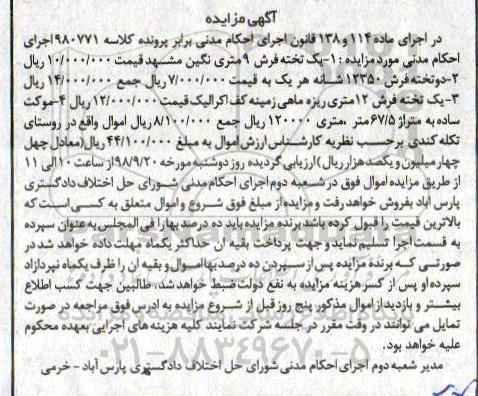 آگهی مزایده
در اجرای ماده ۱۱۴ و ۱۳۸ قانون اجرای احکام مدنی برابر پرونده کلاسه ۹۸۰۷۷۱ اجرای
احکام مدنی مورد مزایده : ۱-یک تخته فرش ۹ متری نگین مشهد قیمت ۱۰/۰۰۰/۰۰۰ ریال
۲-دوتخته فرش ۱۲۳۵۰ شانه هر یک به قیمت ۷/۰۰۰/۰۰۰ ریال جمع ۱۴/۰۰۰/۰۰۰ ریال
۳-یک تخته فرش ۱۲ متری ریزه ماهی زمینه کف اکرالیک قیمت ۱۲/۰۰۰/۰۰۰ ریال ۴-موکت
ساده به متراژ ۶۷/۵ متر ،متری ۱۲۰۰۰۰ ریال جمع ۸/۱۰۰/۰۰۰ ریال اموال واقع در روستای
تکله کندی برحسب نظریه کارشناس ارزش اموال به مبلغ ۴۴/۱۰۰/۰۰۰ ریال(معادل چهل
چهار میلیون و یکصد هزار ریال) ارزیابی گردیده روز دوشنبه مورخه ۹۸/۹/۲۰ از ساعت ۱۰ الی ۱۱
از طریق مزایده اموال فوق در شعبه دوم اجرای احکام مدنی شورای حل اختلاف دادگستری
پارس آباد بفروش خواهد رفت و مزایده از مبلغ فوق شروع و اموال متعلق به کسی است که
بالاترین قیمت را قبول کرده باشد برنده مزایده باید ده درصد بها را فی المجلس به عنوان سپرده
به قسمت اجرا تسلیم نماید و جهت پرداخت بقیه ان حداکثر یکماه مهلت داده خواهد شد در
صورتی که برنده مزایده پس از سپردن ده درصد بها اموال و بقیه ان را ظرف یکماه نپردازد
سپرده او پس از کسر هزینه مزایده به نفع دولت ضبط خواهد شد. طالبین جهت کسب اطلاع
بیشتر و بازدید از اموال مذکور پنج روز قبل از شروع مزایده به ادرس فوق مراجعه در صورت
تمایل می توانند در وقت مقرر در جلسه شرکت نمایند کلیه هزینه های اجرایی بعهده محکوم
علیه خواهد بود.
۰۲۱-۸۸۳۴۹۶۷۰-۵
مدیر شعبه دوم اجرای احکام مدنی شورای حل اختلاف دادگستری پارس آباد - خرمی